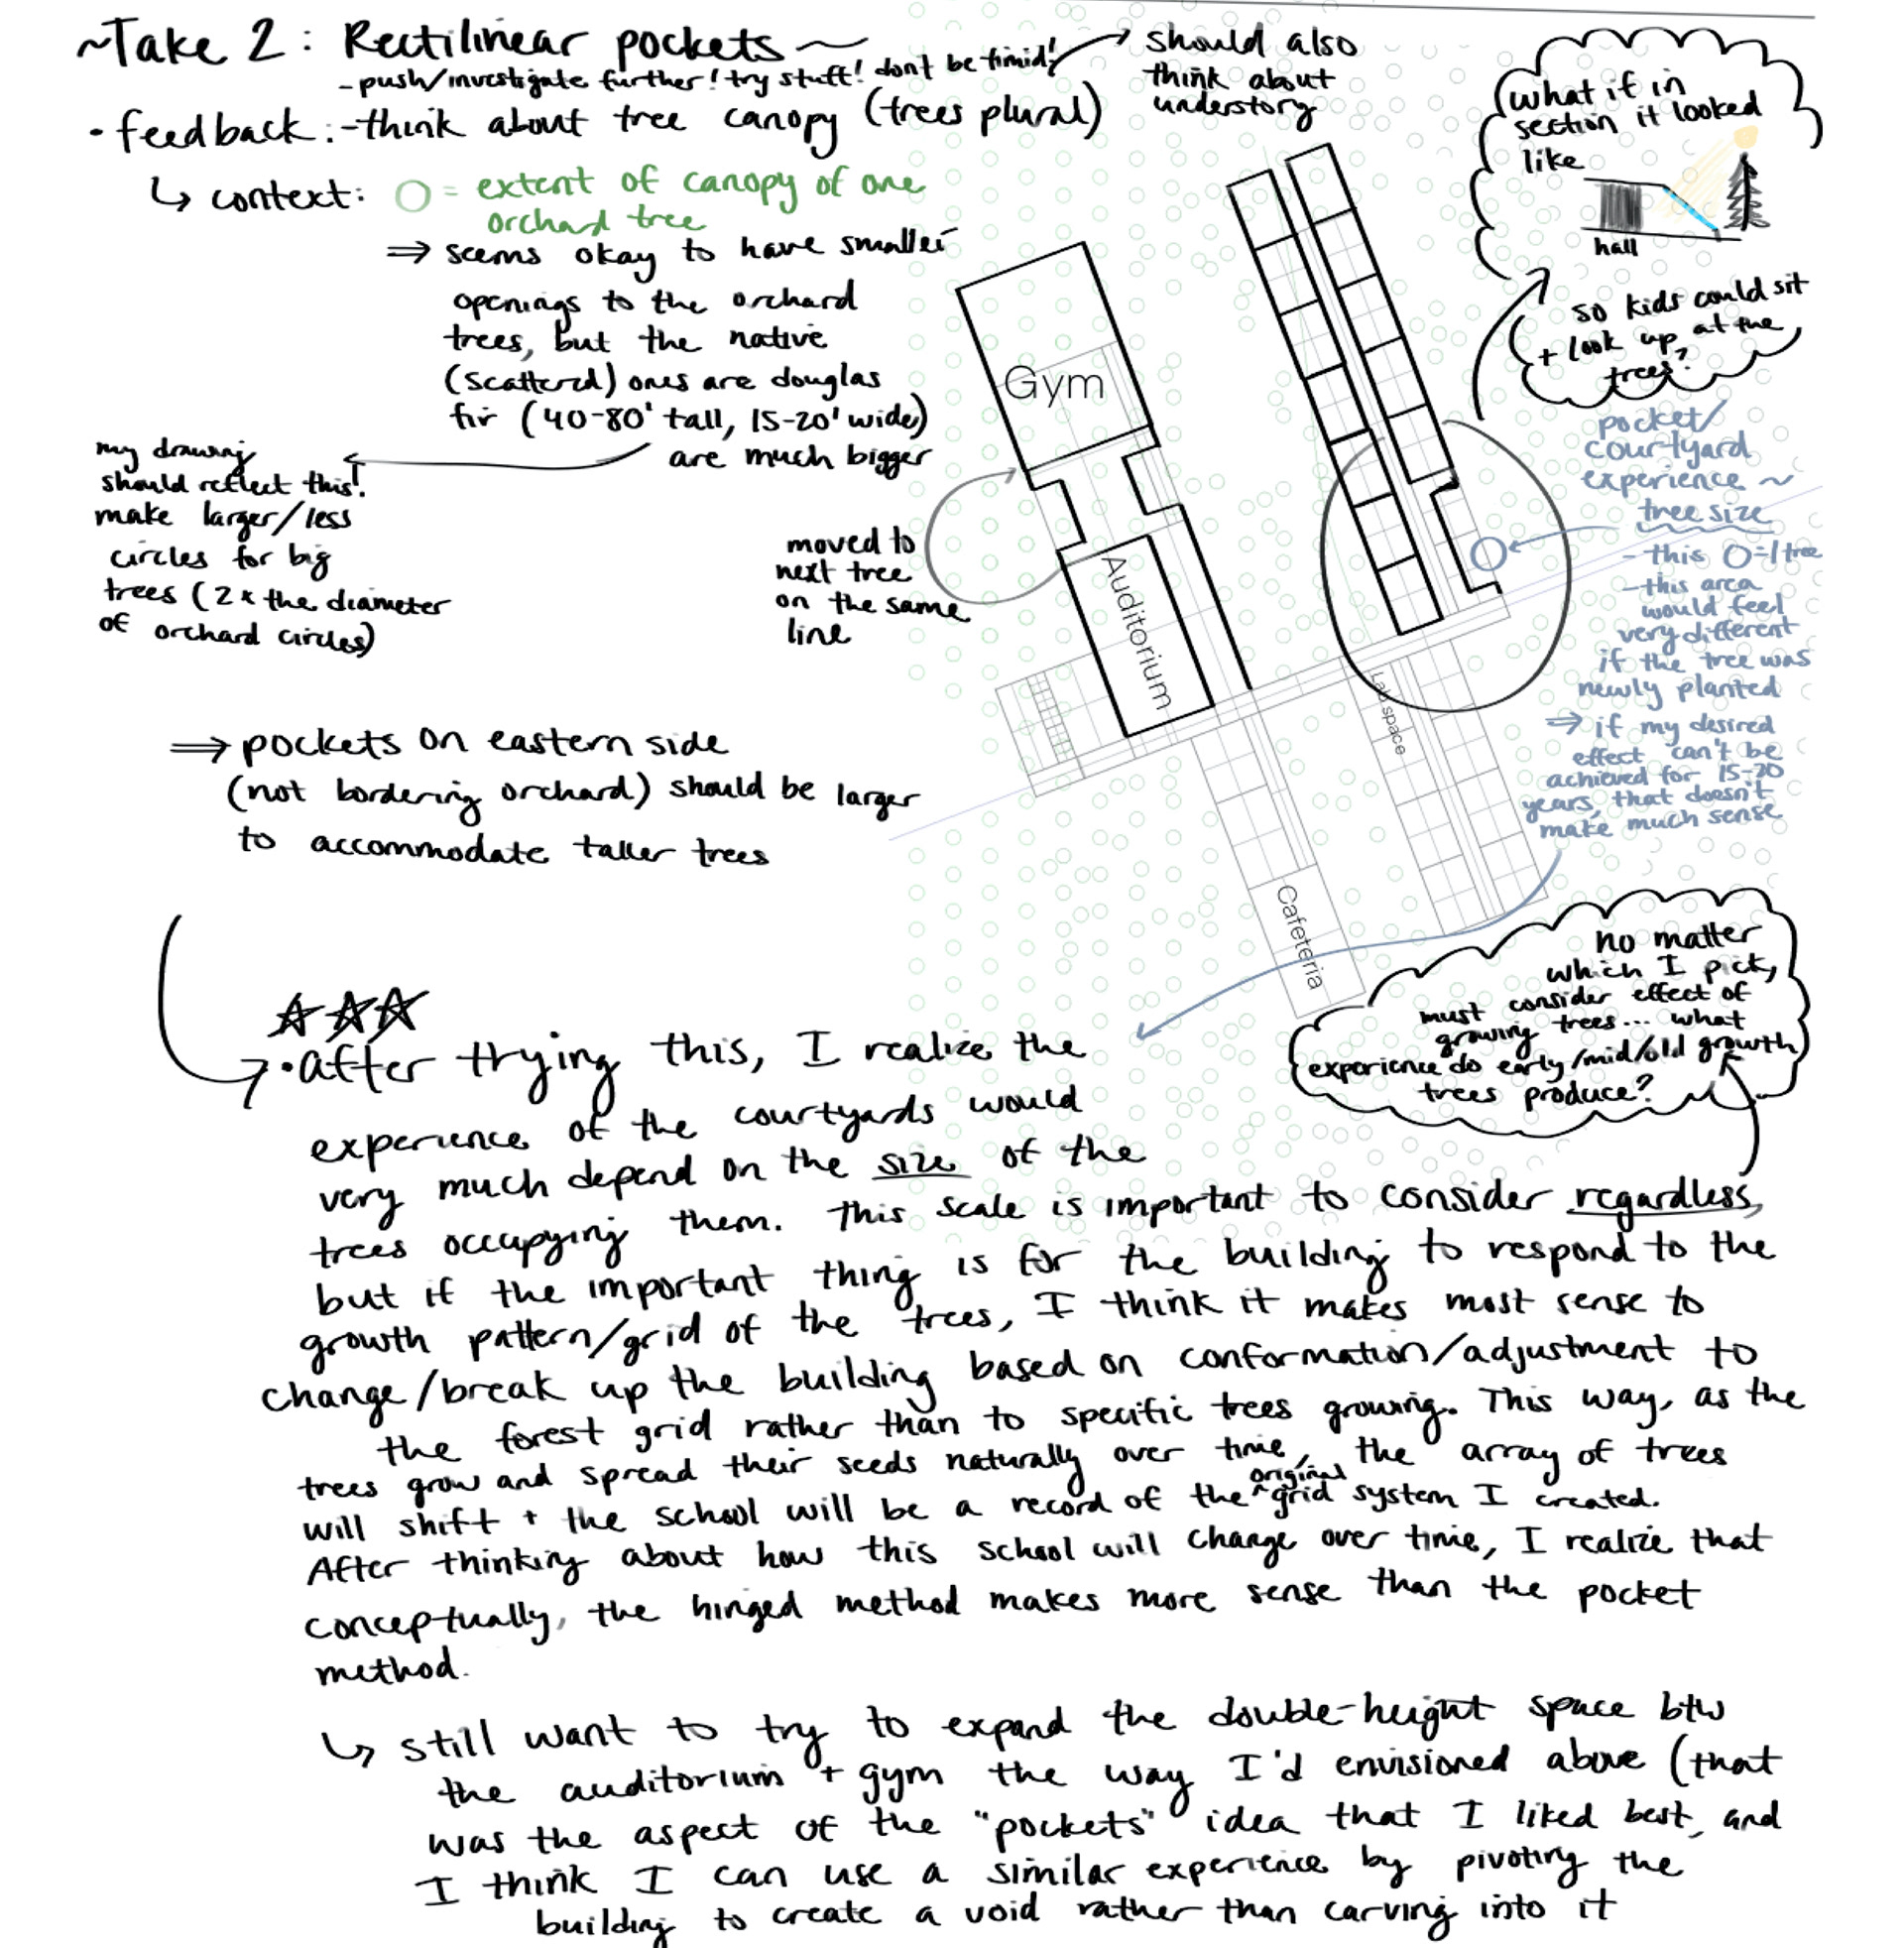 ~Take 2: Rectilinear pockets~
-push/investigate further! try stuff! dont be timid!
• feedback: -think about tree canopy (trees plural)
should also
think about
understory
↳ context: O = extent of canopy of one
orchard tree
⇒ seems okay to have smaller
openings to the orchard
trees, but the native
(scattered) ones are douglas
fir (40-80' tall, 15-20' wide)
are much bigger
my drawing
should reflect this!
make larger/less
circles for big
trees (2x the diameter
of orchard circles)
what if in
section it looked
like
hall
so kids could sit
+ look up at the
trees?
Gym
moved to
next tree
on the same
line
Auditorium
Lab space
Cafeteria
pocket/
courtyard
experience ~
tree size
- this O=1 tree
- this area
would feel
very different
if the tree was
newly planted
⇒ if my desired
effect can't be
achieved for 15-20
years, that doesn't
make much sense
⇒ pockets on eastern side
(not bordering orchard) should be larger
to accommodate taller trees
no matter
which I pick,
must consider effect of
growing trees... what
experience do early/mid/old growth
trees produce?
☆☆☆
• after trying this, I realize the
experience of the courtyards would
very much depend on the size of the
trees occupying them. This scale is important to consider regardless,
but if the important thing is for the building to respond to the
growth pattern/grid of the trees, I think it makes most sense to
change/break up the building based on conformation/adjustment to
the forest grid rather than to specific trees growing. This way, as the
trees grow and spread their seeds naturally over time, the array of trees
will shift + the school will be a record of the ^original grid system I created.
After thinking about how this school will change over time, I realize that
conceptually, the hinged method makes more sense than the pocket
method.
↳ still want to try to expand the double-height space btw
the auditorium + gym the way I'd envisioned above (that
was the aspect of the "pockets" idea that I liked best, and
I think I can use a similar experience by pivoting the
building to create a void rather than carving into it